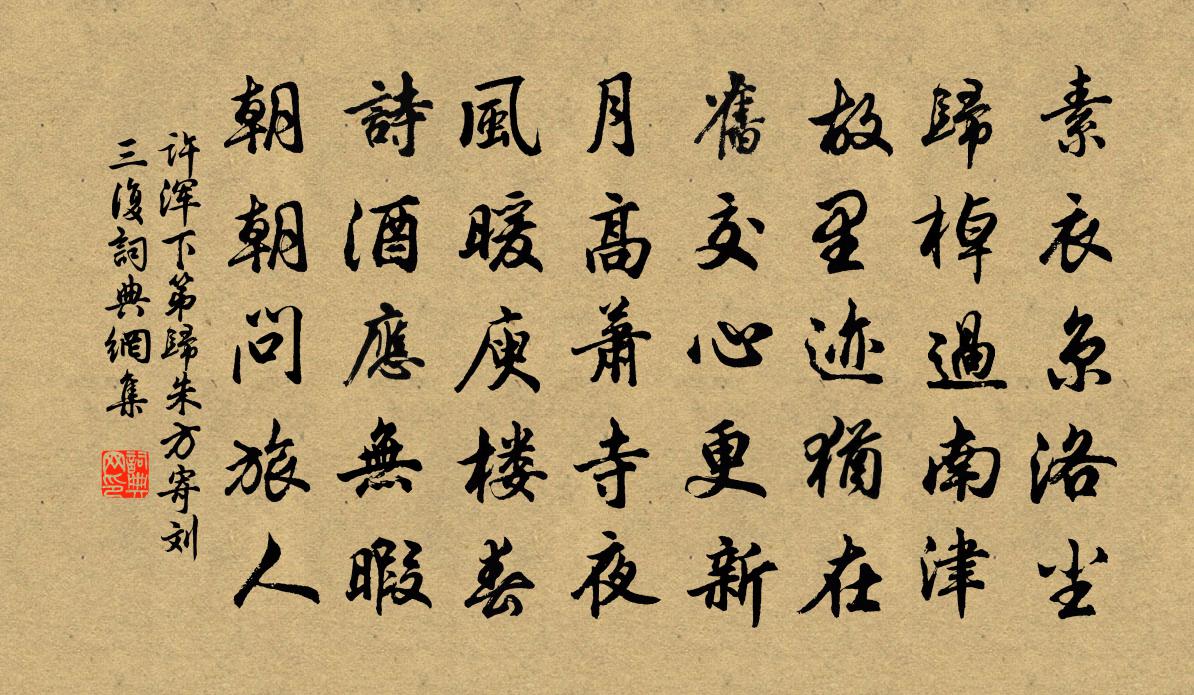 素衣京洛尘
歸棹過南津
故里迹猶在
舊交心更新
月高蕭寺夜
風暖庾楼春
詩酒應無暇
朝朝問旅人
许浑下第歸朱方寄刘
三復詞典網集
詞典网印